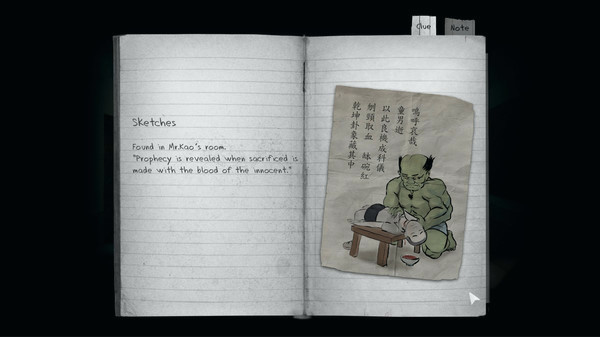 Clue
Note
Sketches
Found in Mr.Kao's room.
"Prophecy is revealed when sacrificed is
made with the blood of the innocent."
嗚呼哀哉
童男逝
以此良機成科儀
刎頸取血 碗紅
乾坤卦象藏其中